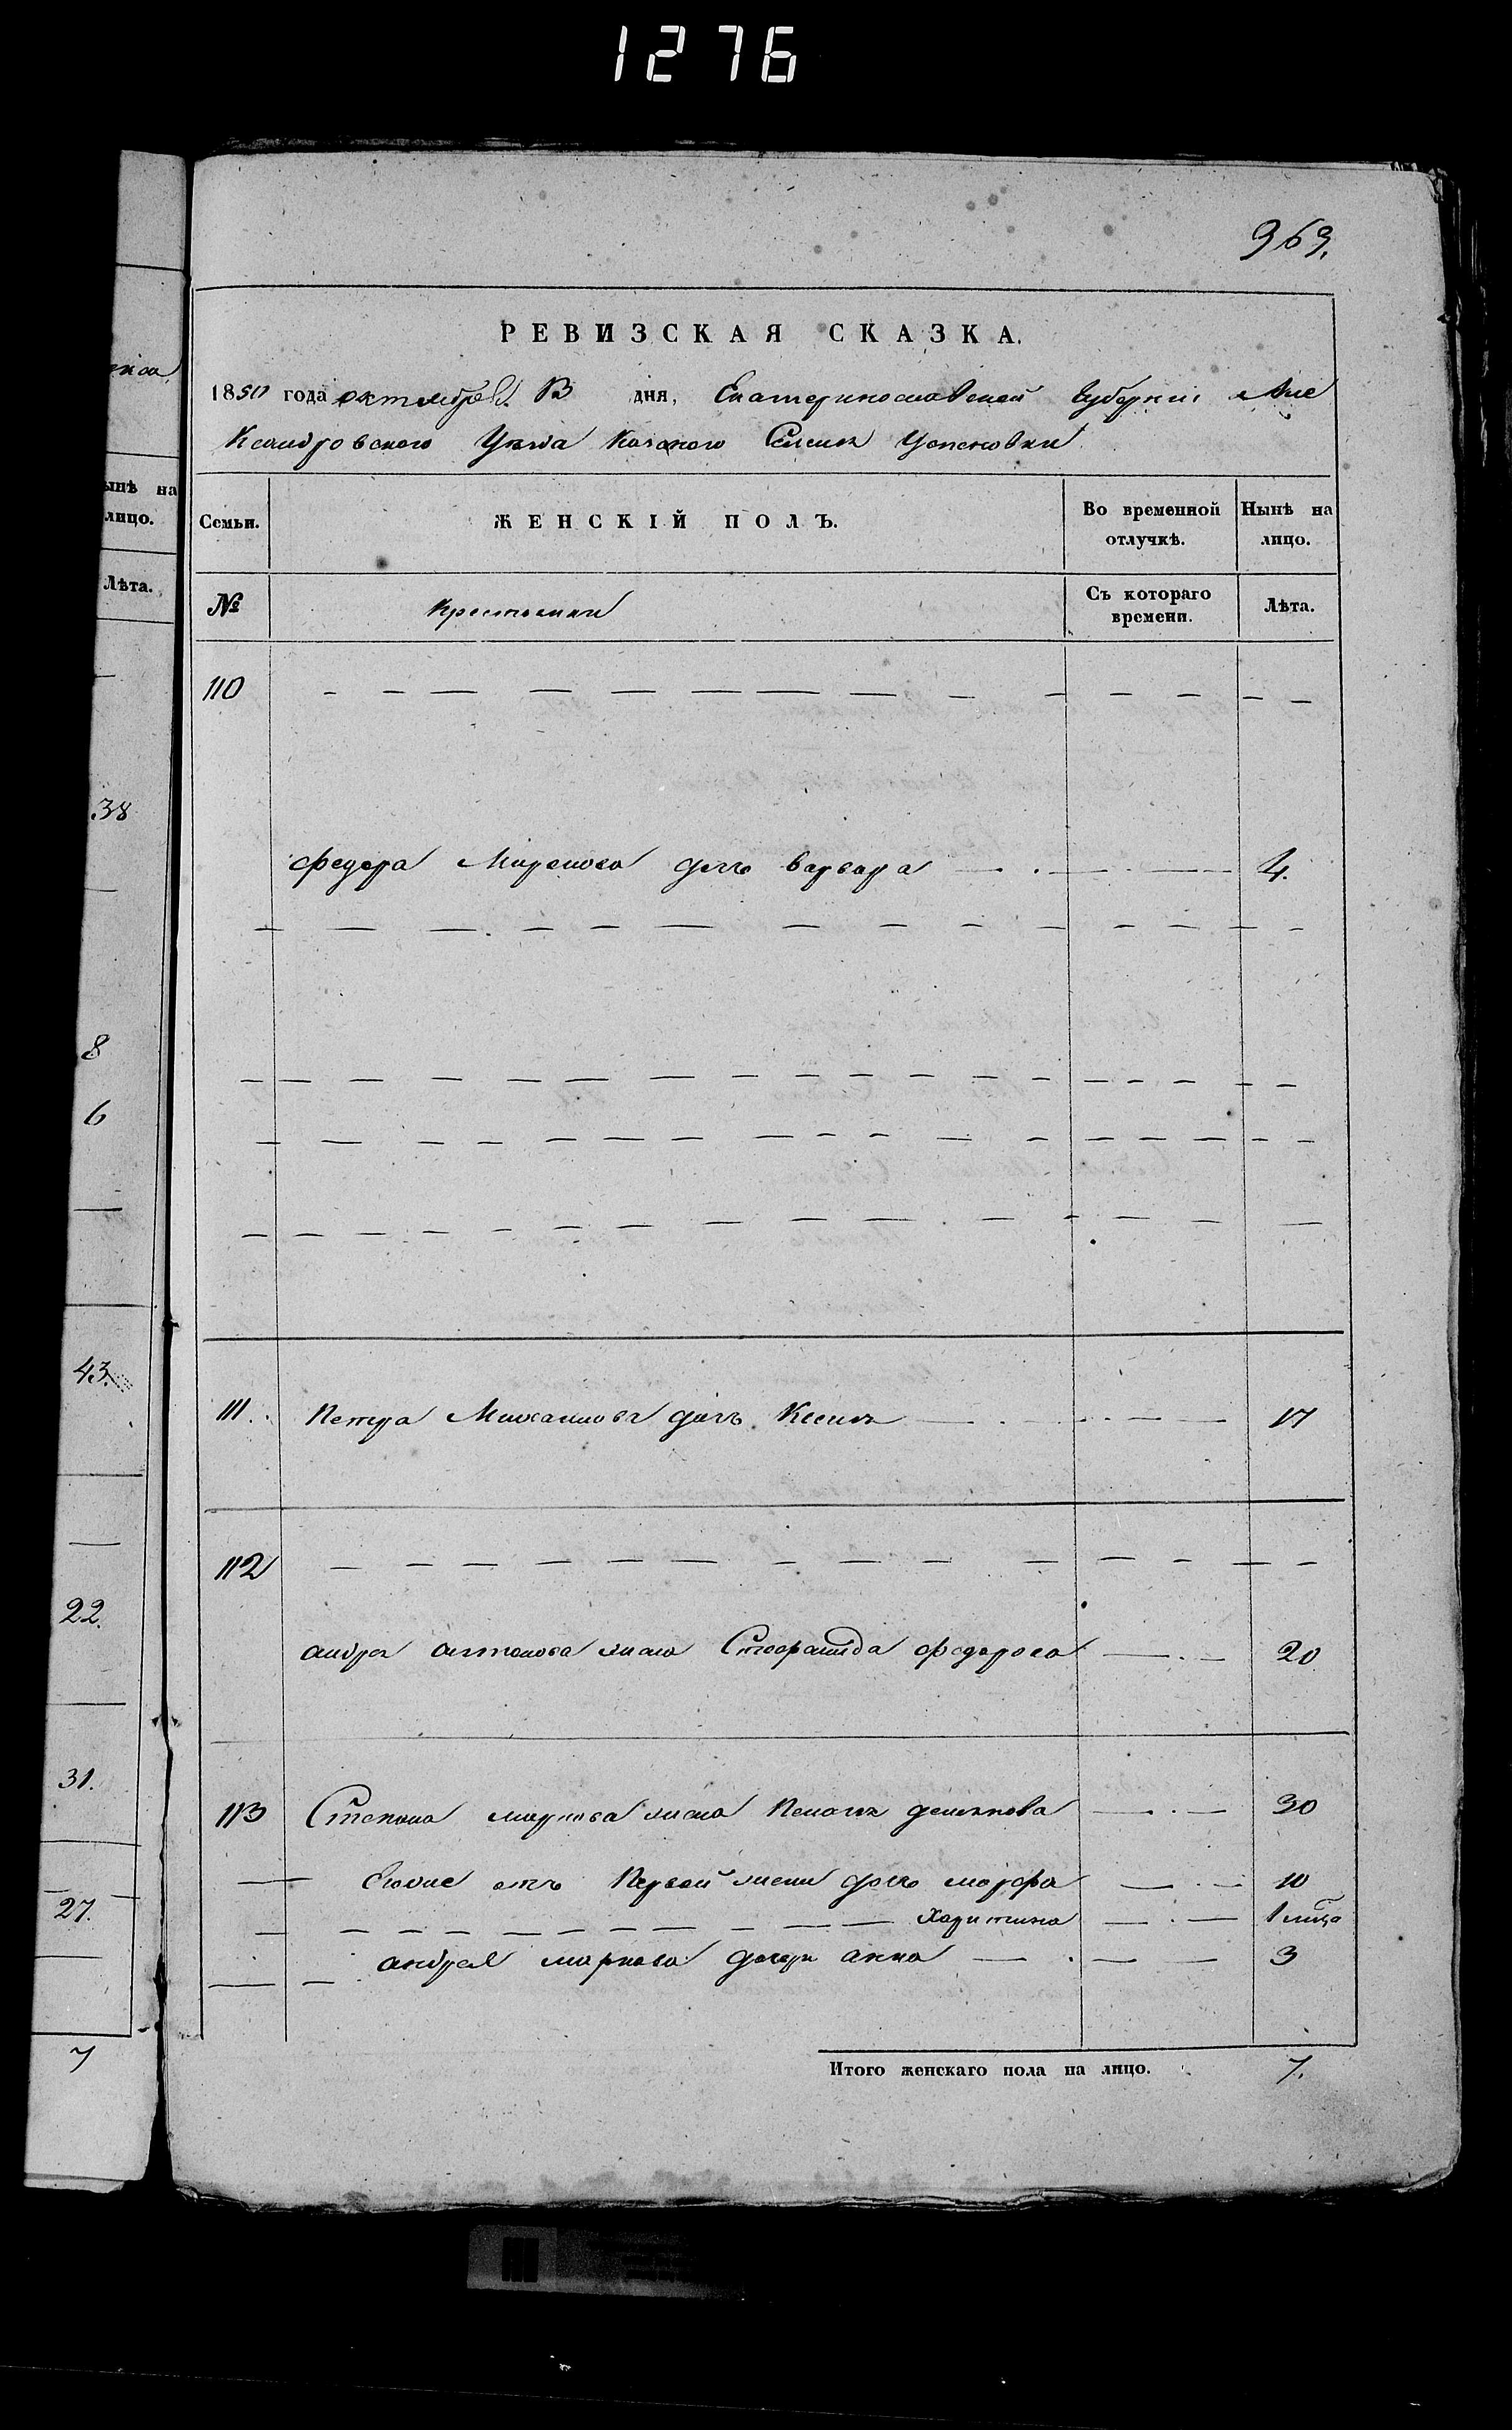 1276
969.
РЕВИЗСКАЯ СКАЗКА.
1850 года октября дня, Екатеринославской Губернии Але
Ксандровского Уезда Казеного Селения Успеновки
Семьи. ЖЕНСКІЙ ПОЛЪ. Во временной отлучкѣ. Нынѣ на лицо.
№ Крестьянки Съ котораго времени. Лѣта.
110
федора Миронова дочь варвара 4.
111. Петра Михайлова дочь Ксения 17
112
андрея антонова жена федорова 20
113 Степана маркова жена Пелагея демянова 30
Еговые отъ Первой жены дочь марфа 10
Харитина 1
андрея маркова дочери анна 3
Итого женскаго пола на лицо. 7.
ынѣ на
лицо.
Лѣта.
38
8
6
43.
22.
31.
27.
7